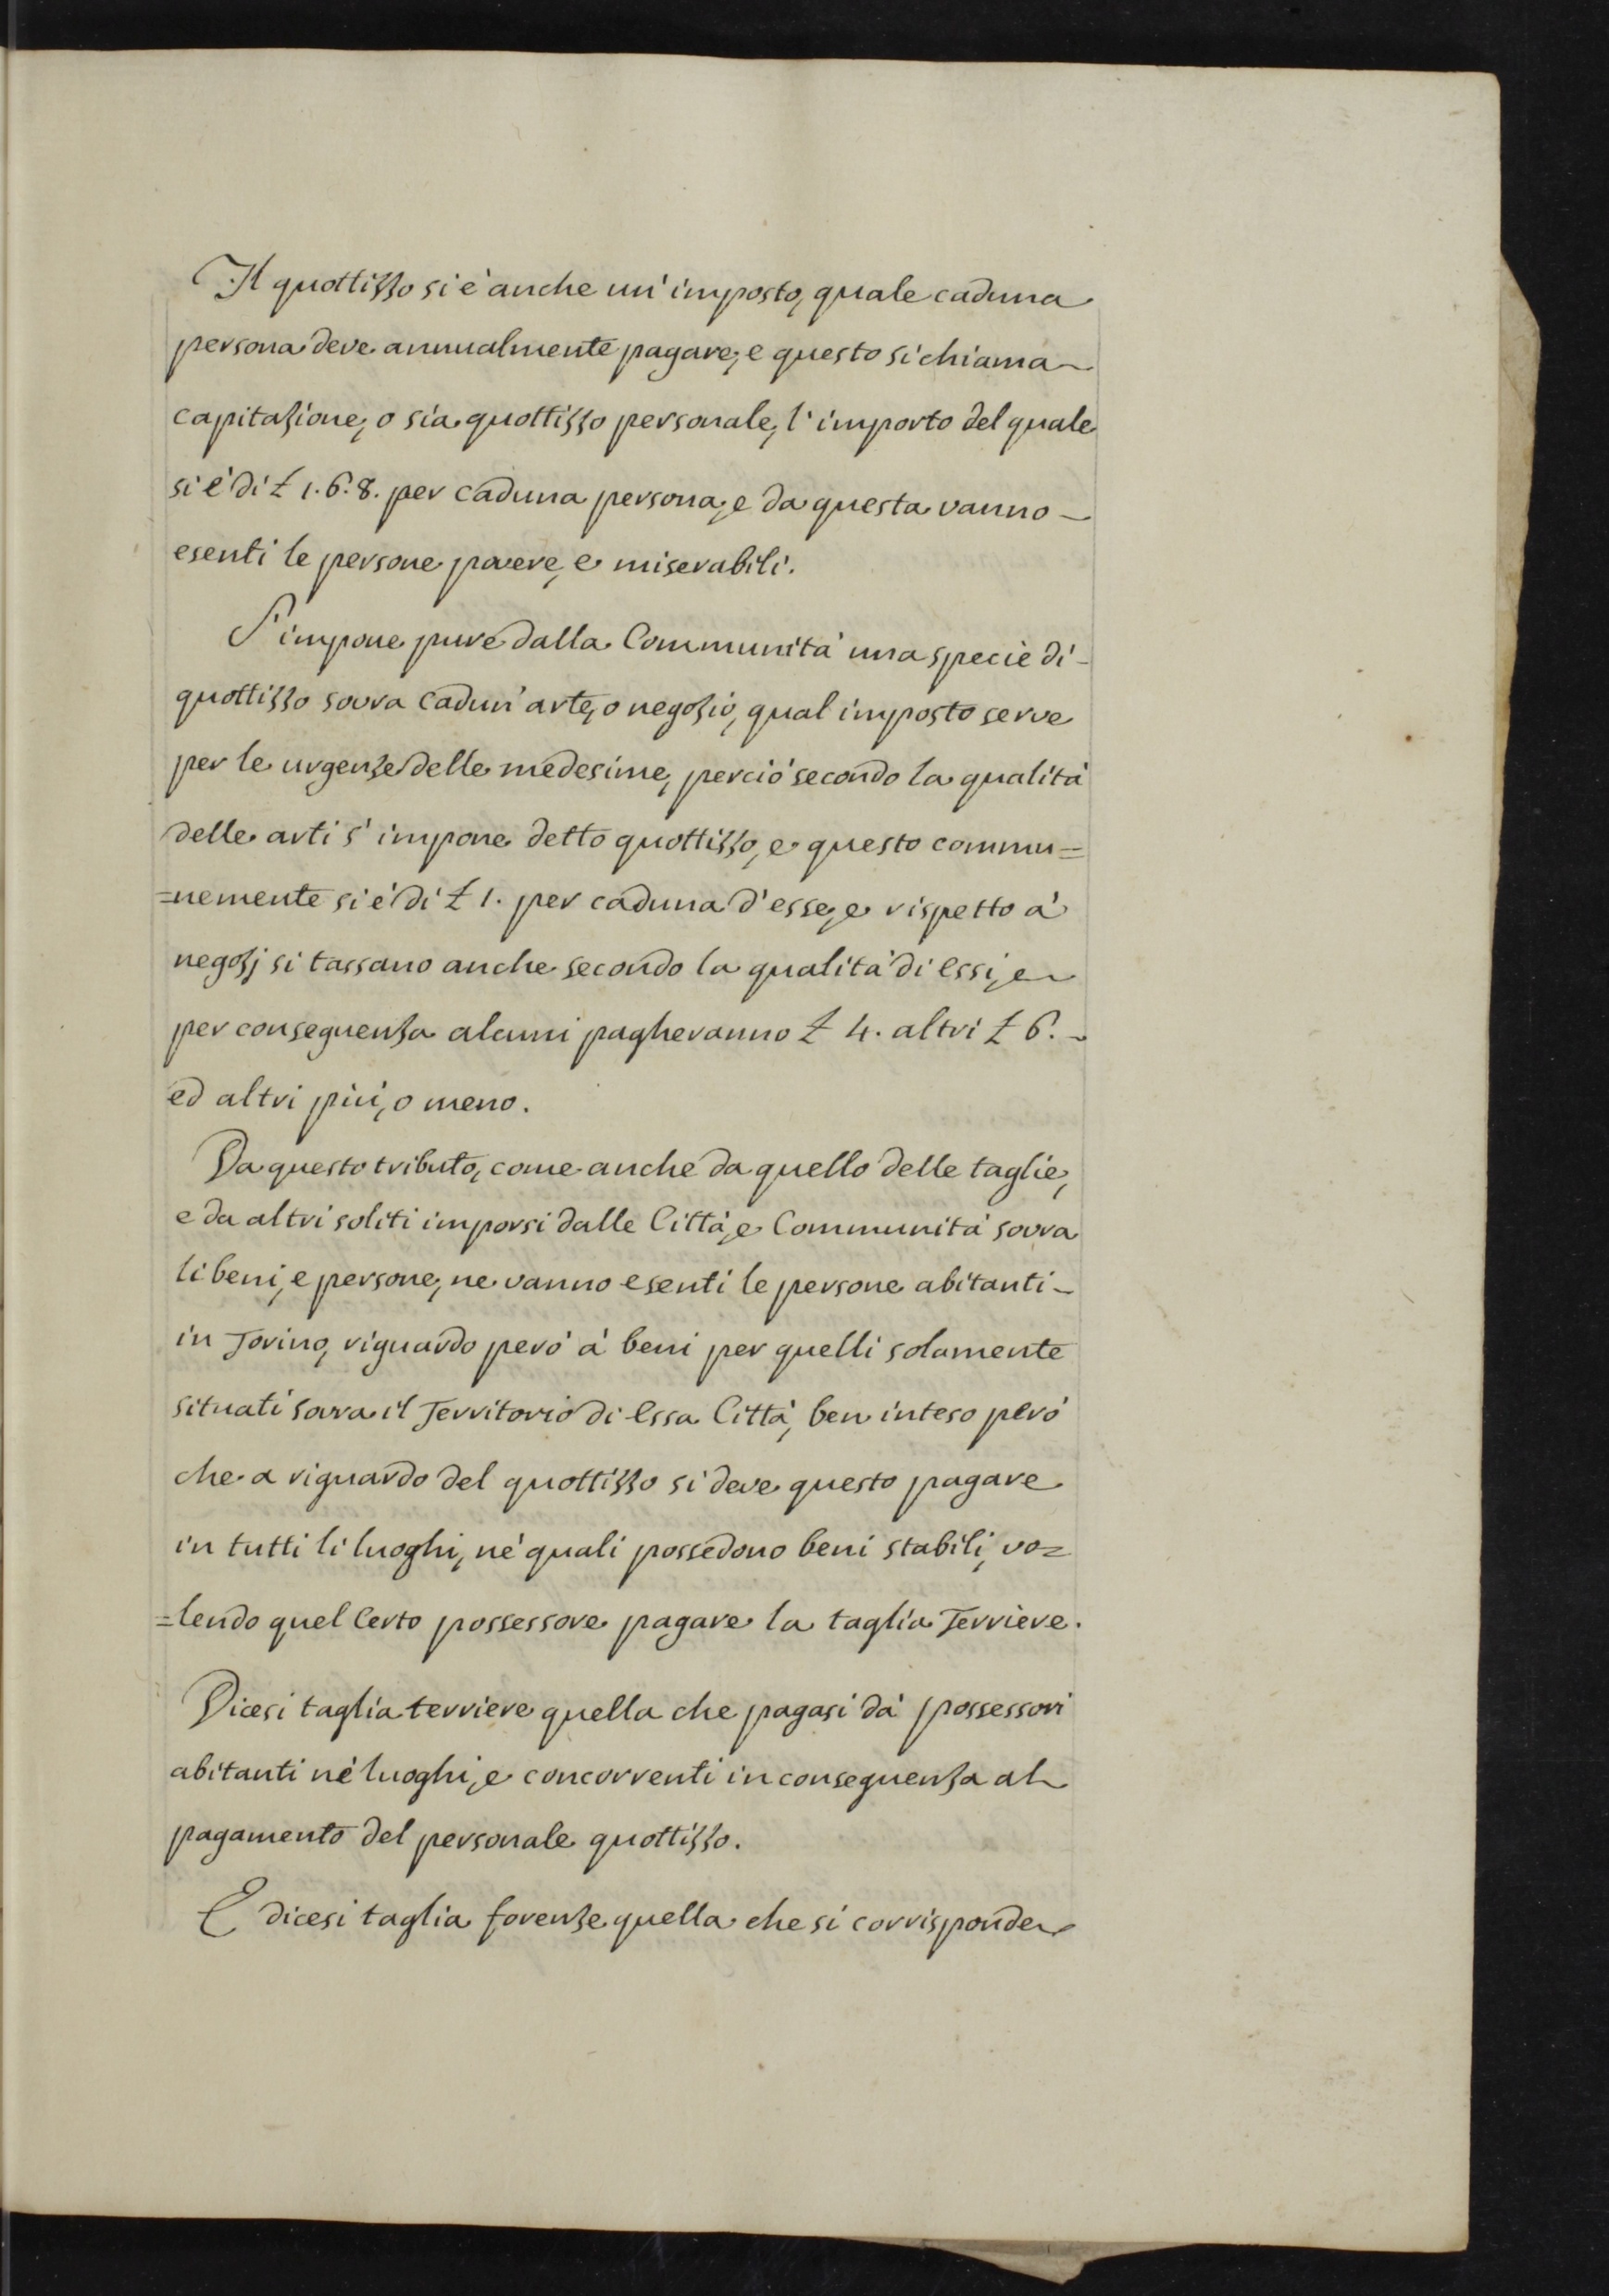 Il quottizzo si è anche un' imposto, quale caduna
persona deve annualmente pagare, e questo si chiama
capitazione, o sia quottizzo personale, l' importo del quale
si è di £ 1. 6. 8. per caduna persona, e da questa vanno
esenti le persone povere, e miserabili.
S' impone pure dalla Communità una specie di
quottizzo sovra cadun' arte, o negozio, qual imposto serve
per le urgenze delle medesime, perciò secondo la qualità
delle arti s' impone detto quottizzo, e questo commu=
=nemente si è di £ 1. per caduna d' esse, e rispetto à
negozj si tassano anche secondo la qualità di essi, e
per conseguenza alcuni pagheranno £ 4. altri £ 6.
ed altri più, o meno.
Da questo tributo, come anche da quello delle taglie,
e da altri soliti imporsi dalle Città, e Communità sovra
li beni, e persone, ne vanno esenti le persone abitanti
in Torino, riguardo però à beni per quelli solamente
situati sovra il Territorio di essa Città, ben inteso però
che a riguardo del quottizzo si deve questo pagare
in tutti li luoghi, nè quali possedono beni stabili, vo=
=lendo quel certo possessore pagare la taglia Terriere.
Dicesi taglia terriere quella che pagasi dà possessori
abitanti nè luoghi, e concorrenti in conseguenza al
pagamento del personale quottizzo.
E dicesi taglia forenze quella che si corrisponde